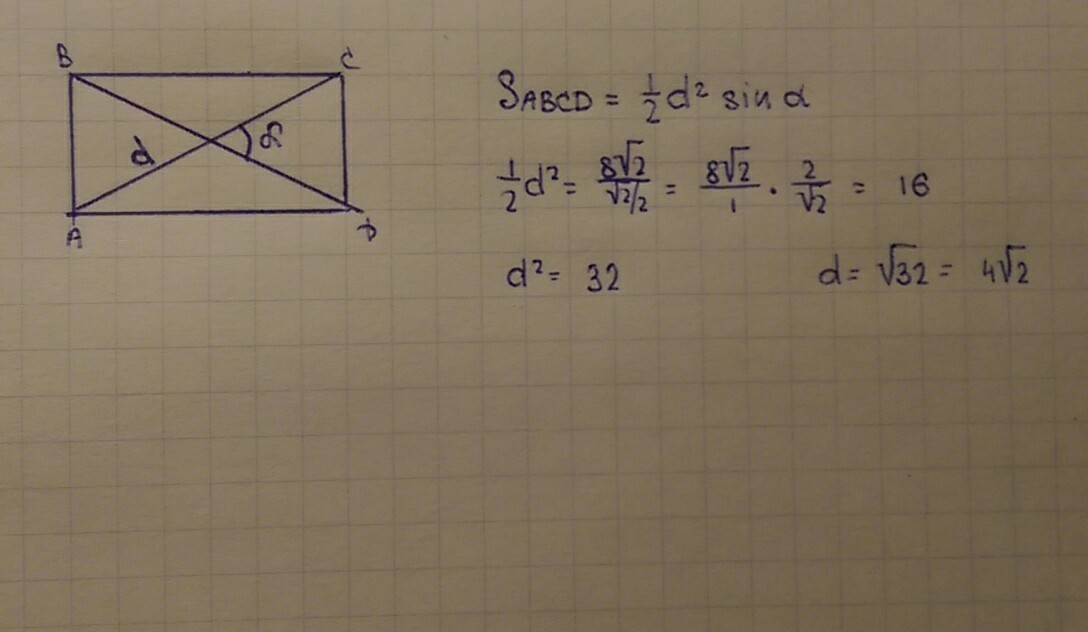 B C
S_ABCD = 1/2 d² sin α
d α
1/2 d² = 8√2 / (√2/2) = 8√2/1 · 2/√2 = 16
A D
d² = 32 d = √32 = 4√2